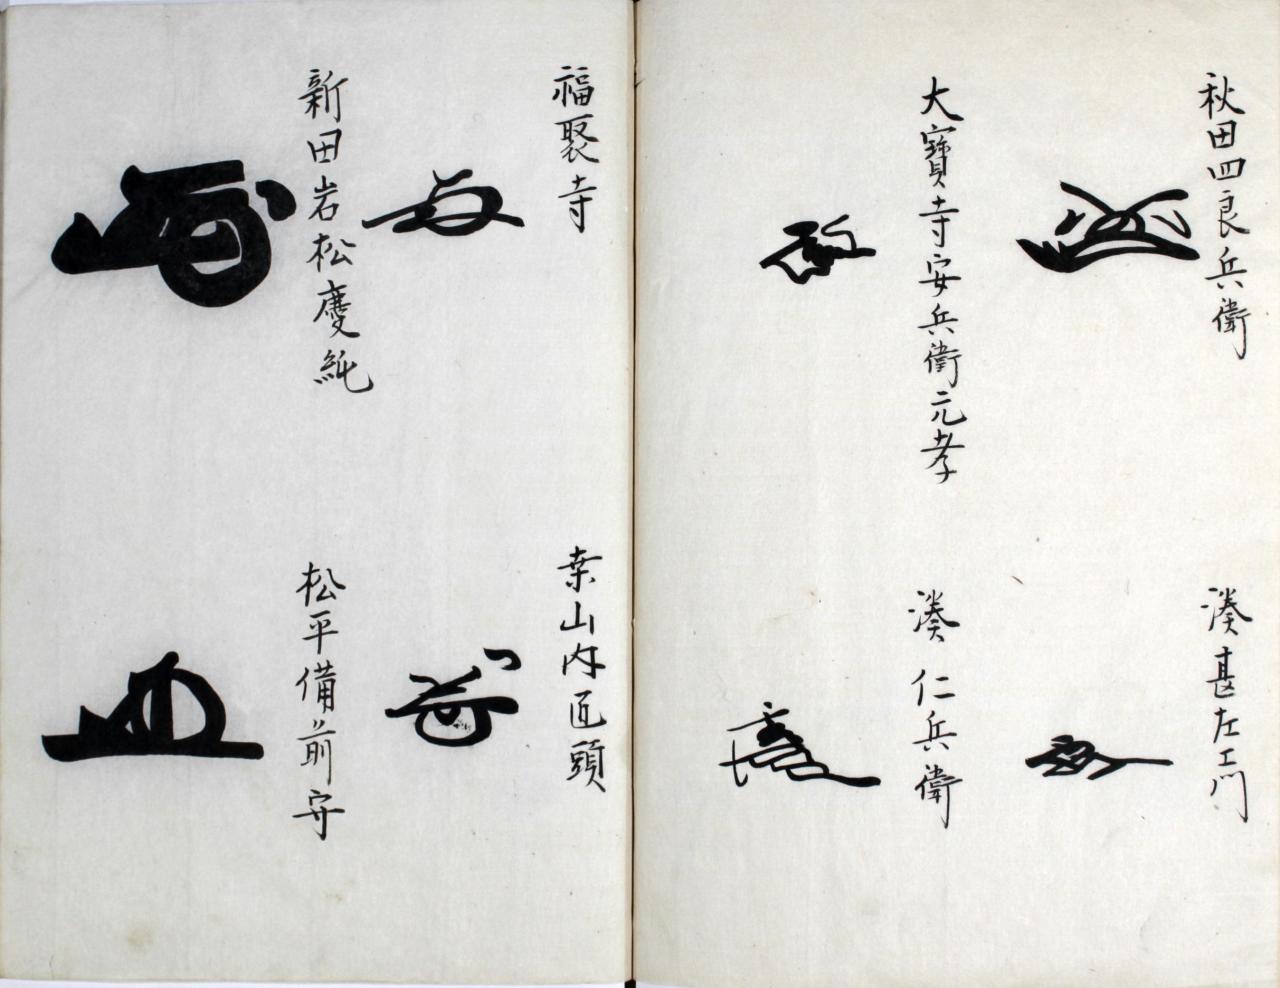 秋田四良兵衛
湊甚左エ門
大寶寺安兵衛元孝
湊仁兵衛
福聚寺
桒山内匠頭
新田岩松慶純
松平備前守